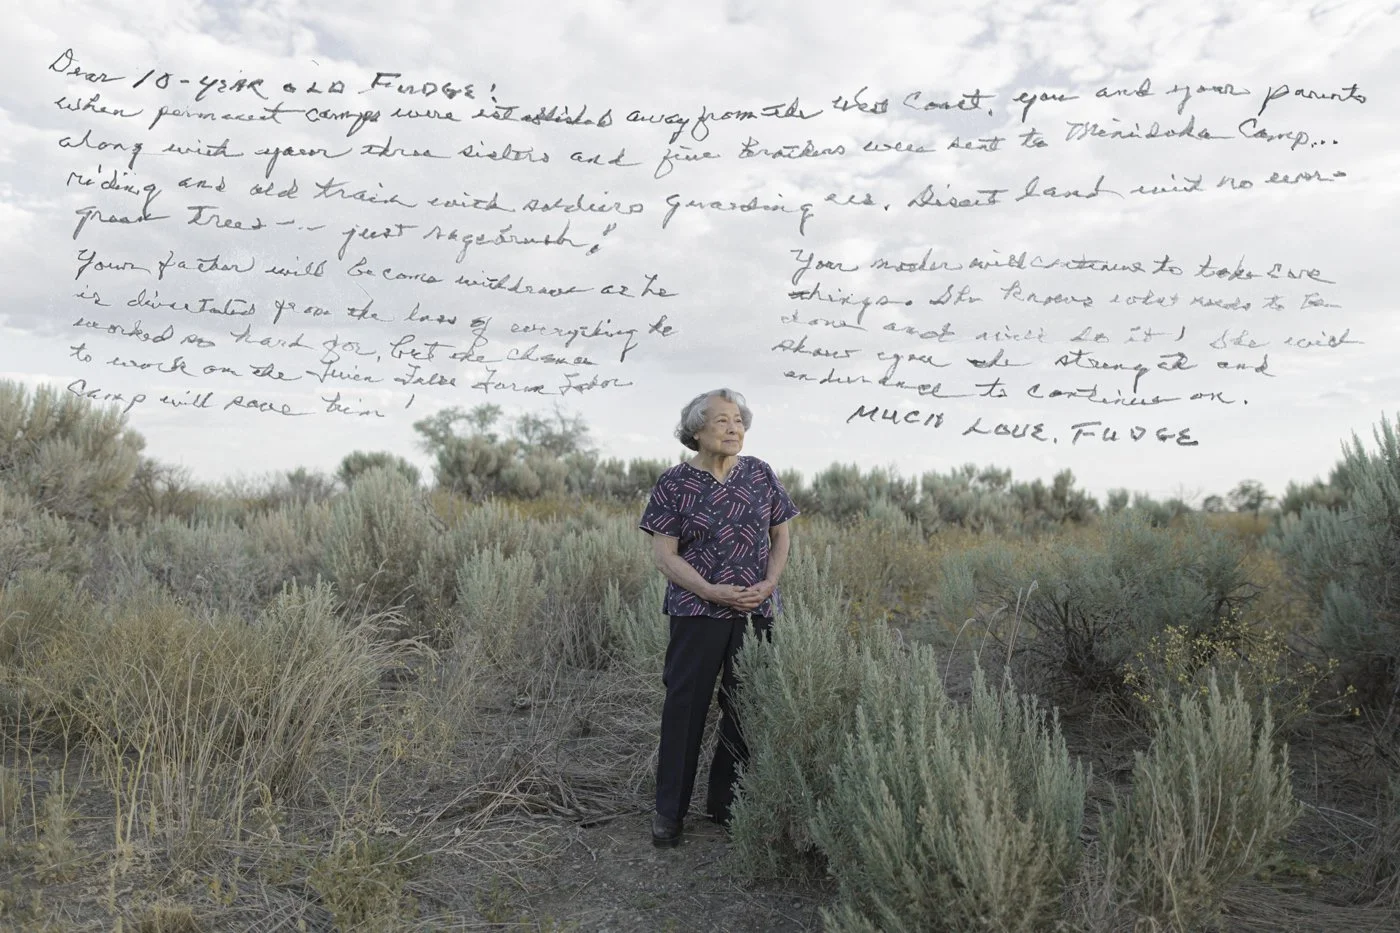 Dear 10-YEAR OLD FUDGE!
When permanent camps were established away from the West Coast, you and your parents
along with your three sisters and five brothers were sent to Minidoka Camp...
riding and old train with soldiers guarding us. Desert land with no ever-
green trees --- just sagebrush!
Your father will become withdrawn as he
is devastated from the loss of everything he
worked so hard for, but the chance
to work on the Twin Falls Farm Labor
Camp will save him!
Your mother will continue to take care
things. She knows what needs to be
done and will do it! She will
show you the strength and
endurance to continue on.
MUCH LOVE, FUDGE